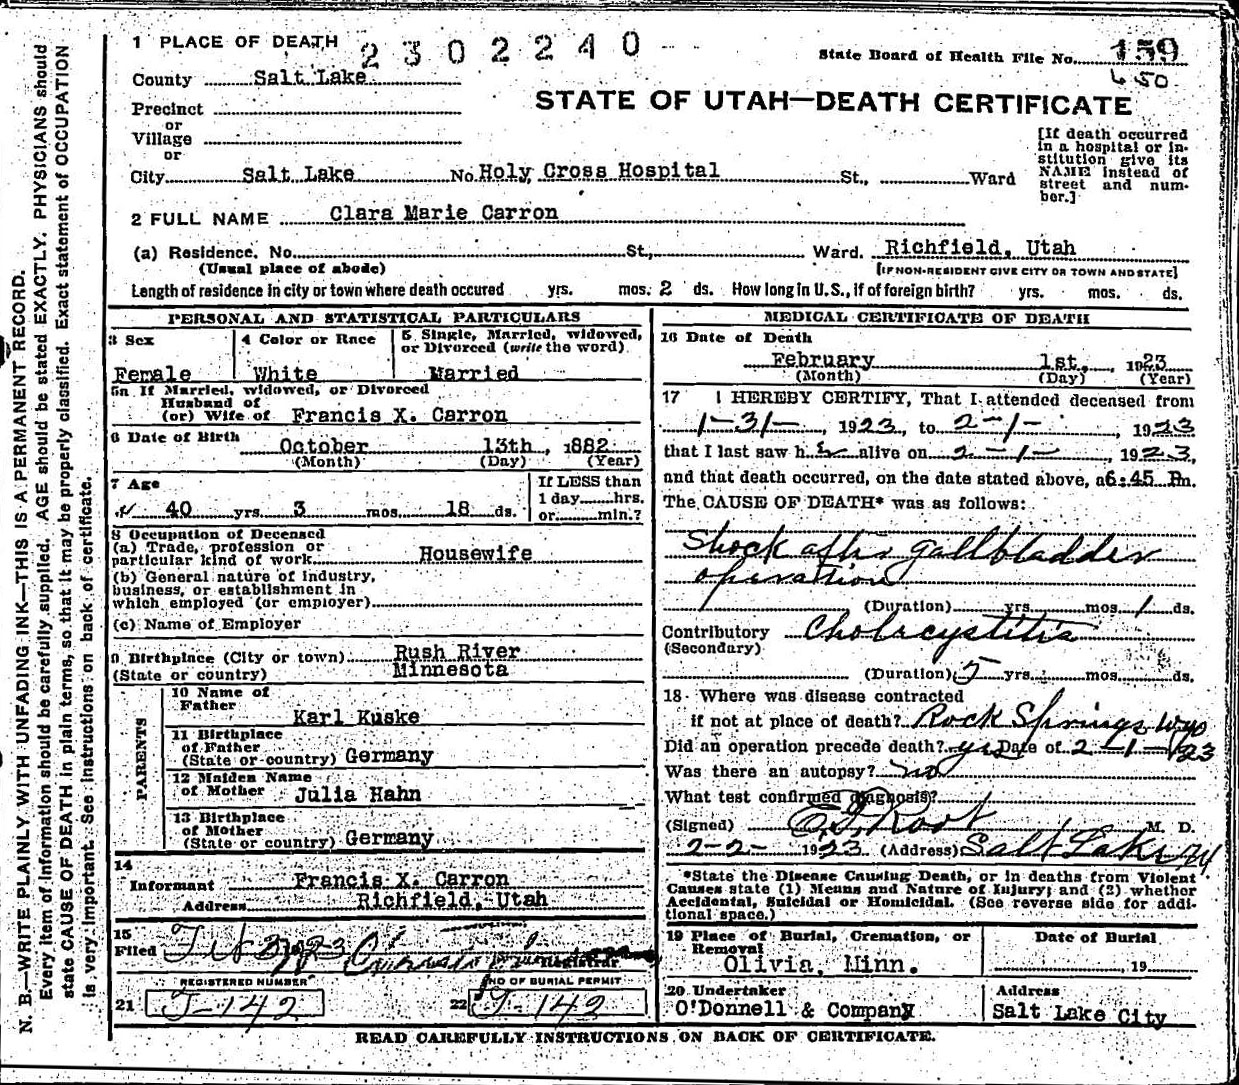 1 PLACE OF DEATH
2302240
State Board of Health File No. 159
650
County Salt Lake
STATE OF UTAH—DEATH CERTIFICATE
Precinct
or
Village
or
City Salt Lake No. Holy Cross Hospital St., Ward
[If death occurred
in a hospital or in-
stitution give its
NAME instead of
street and num-
ber.]
2 FULL NAME Clara Marie Carron
(a) Residence. No. St., Ward. Richfield, Utah
(Usual place of abode) [IF NON-RESIDENT GIVE CITY OR TOWN AND STATE]
Length of residence in city or town where death occured yrs. mos. 2 ds. How long in U.S., if of foreign birth? yrs. mos. ds.
PERSONAL AND STATISTICAL PARTICULARS
3 Sex
Female
4 Color or Race
White
5 Single, Married, widowed,
or Divorced (write the word)
Married
5a If Married, widowed, or Divorced
Husband of
(or) Wife of Francis X. Carron
6 Date of Birth October 13th, 1882
(Month) (Day) (Year)
7 Age
40 yrs. 3 mos. 18 ds.
If LESS than
1 day hrs.
or min.?
8 Occupation of Deceased
(a) Trade, profession or
particular kind of work Housewife
(b) General nature of industry,
business, or establishment in
which employed (or employer)
(c) Name of Employer
9 Birthplace (City or town) Rush River
(State or country) Minnesota
PARENTS
10 Name of
Father
Karl Kuske
11 Birthplace
of Father
(State or country) Germany
12 Maiden Name
of Mother Julia Hahn
13 Birthplace
of Mother
(State or country) Germany
14
Informant Francis X. Carron
Address Richfield, Utah
15
Filed
Registrar
REGISTERED NUMBER NO OF BURIAL PERMIT
21 J-142 22 J-142
MEDICAL CERTIFICATE OF DEATH
16 Date of Death
February 1st, 1923
(Month) (Day) (Year)
17 I HEREBY CERTIFY, That I attended deceased from
1-31-, 1923, to 2-1-, 1923
that I last saw h alive on 2-1-, 1923,
and that death occurred, on the date stated above, a 6:45 P m.
The CAUSE OF DEATH* was as follows:
Shock after gallbladder
operation
(Duration) yrs. mos. 1 ds.
Contributory Cholecystitis
(Secondary)
(Duration) 5 yrs. mos. ds.
18 Where was disease contracted
if not at place of death? Rock Springs Wyo
Did an operation precede death? yes Date of 2-1-1923
Was there an autopsy? no
What test confirmed diagnosis?
(Signed) E.F. Root M. D.
2-2- 1923 (Address) Salt Lake
*State the Disease Causing Death, or in deaths from Violent
Causes state (1) Means and Nature of Injury; and (2) whether
Accidental, Suicidal or Homicidal. (See reverse side for addi-
tional space.)
19 Place of Burial, Cremation, or
Removal
Olivia, Minn.
Date of Burial
, 19
20 Undertaker
O'Donnell & Company
Address
Salt Lake City
READ CAREFULLY INSTRUCTIONS ON BACK OF CERTIFICATE.
N. B.—WRITE PLAINLY WITH UNFADING INK—THIS IS A PERMANENT RECORD.
Every item of information should be carefully supplied. AGE should be stated EXACTLY. PHYSICIANS should
state CAUSE OF DEATH in plain terms, so that it may be properly classified. Exact statement of OCCUPATION
is very important. See instructions on back of certificate.